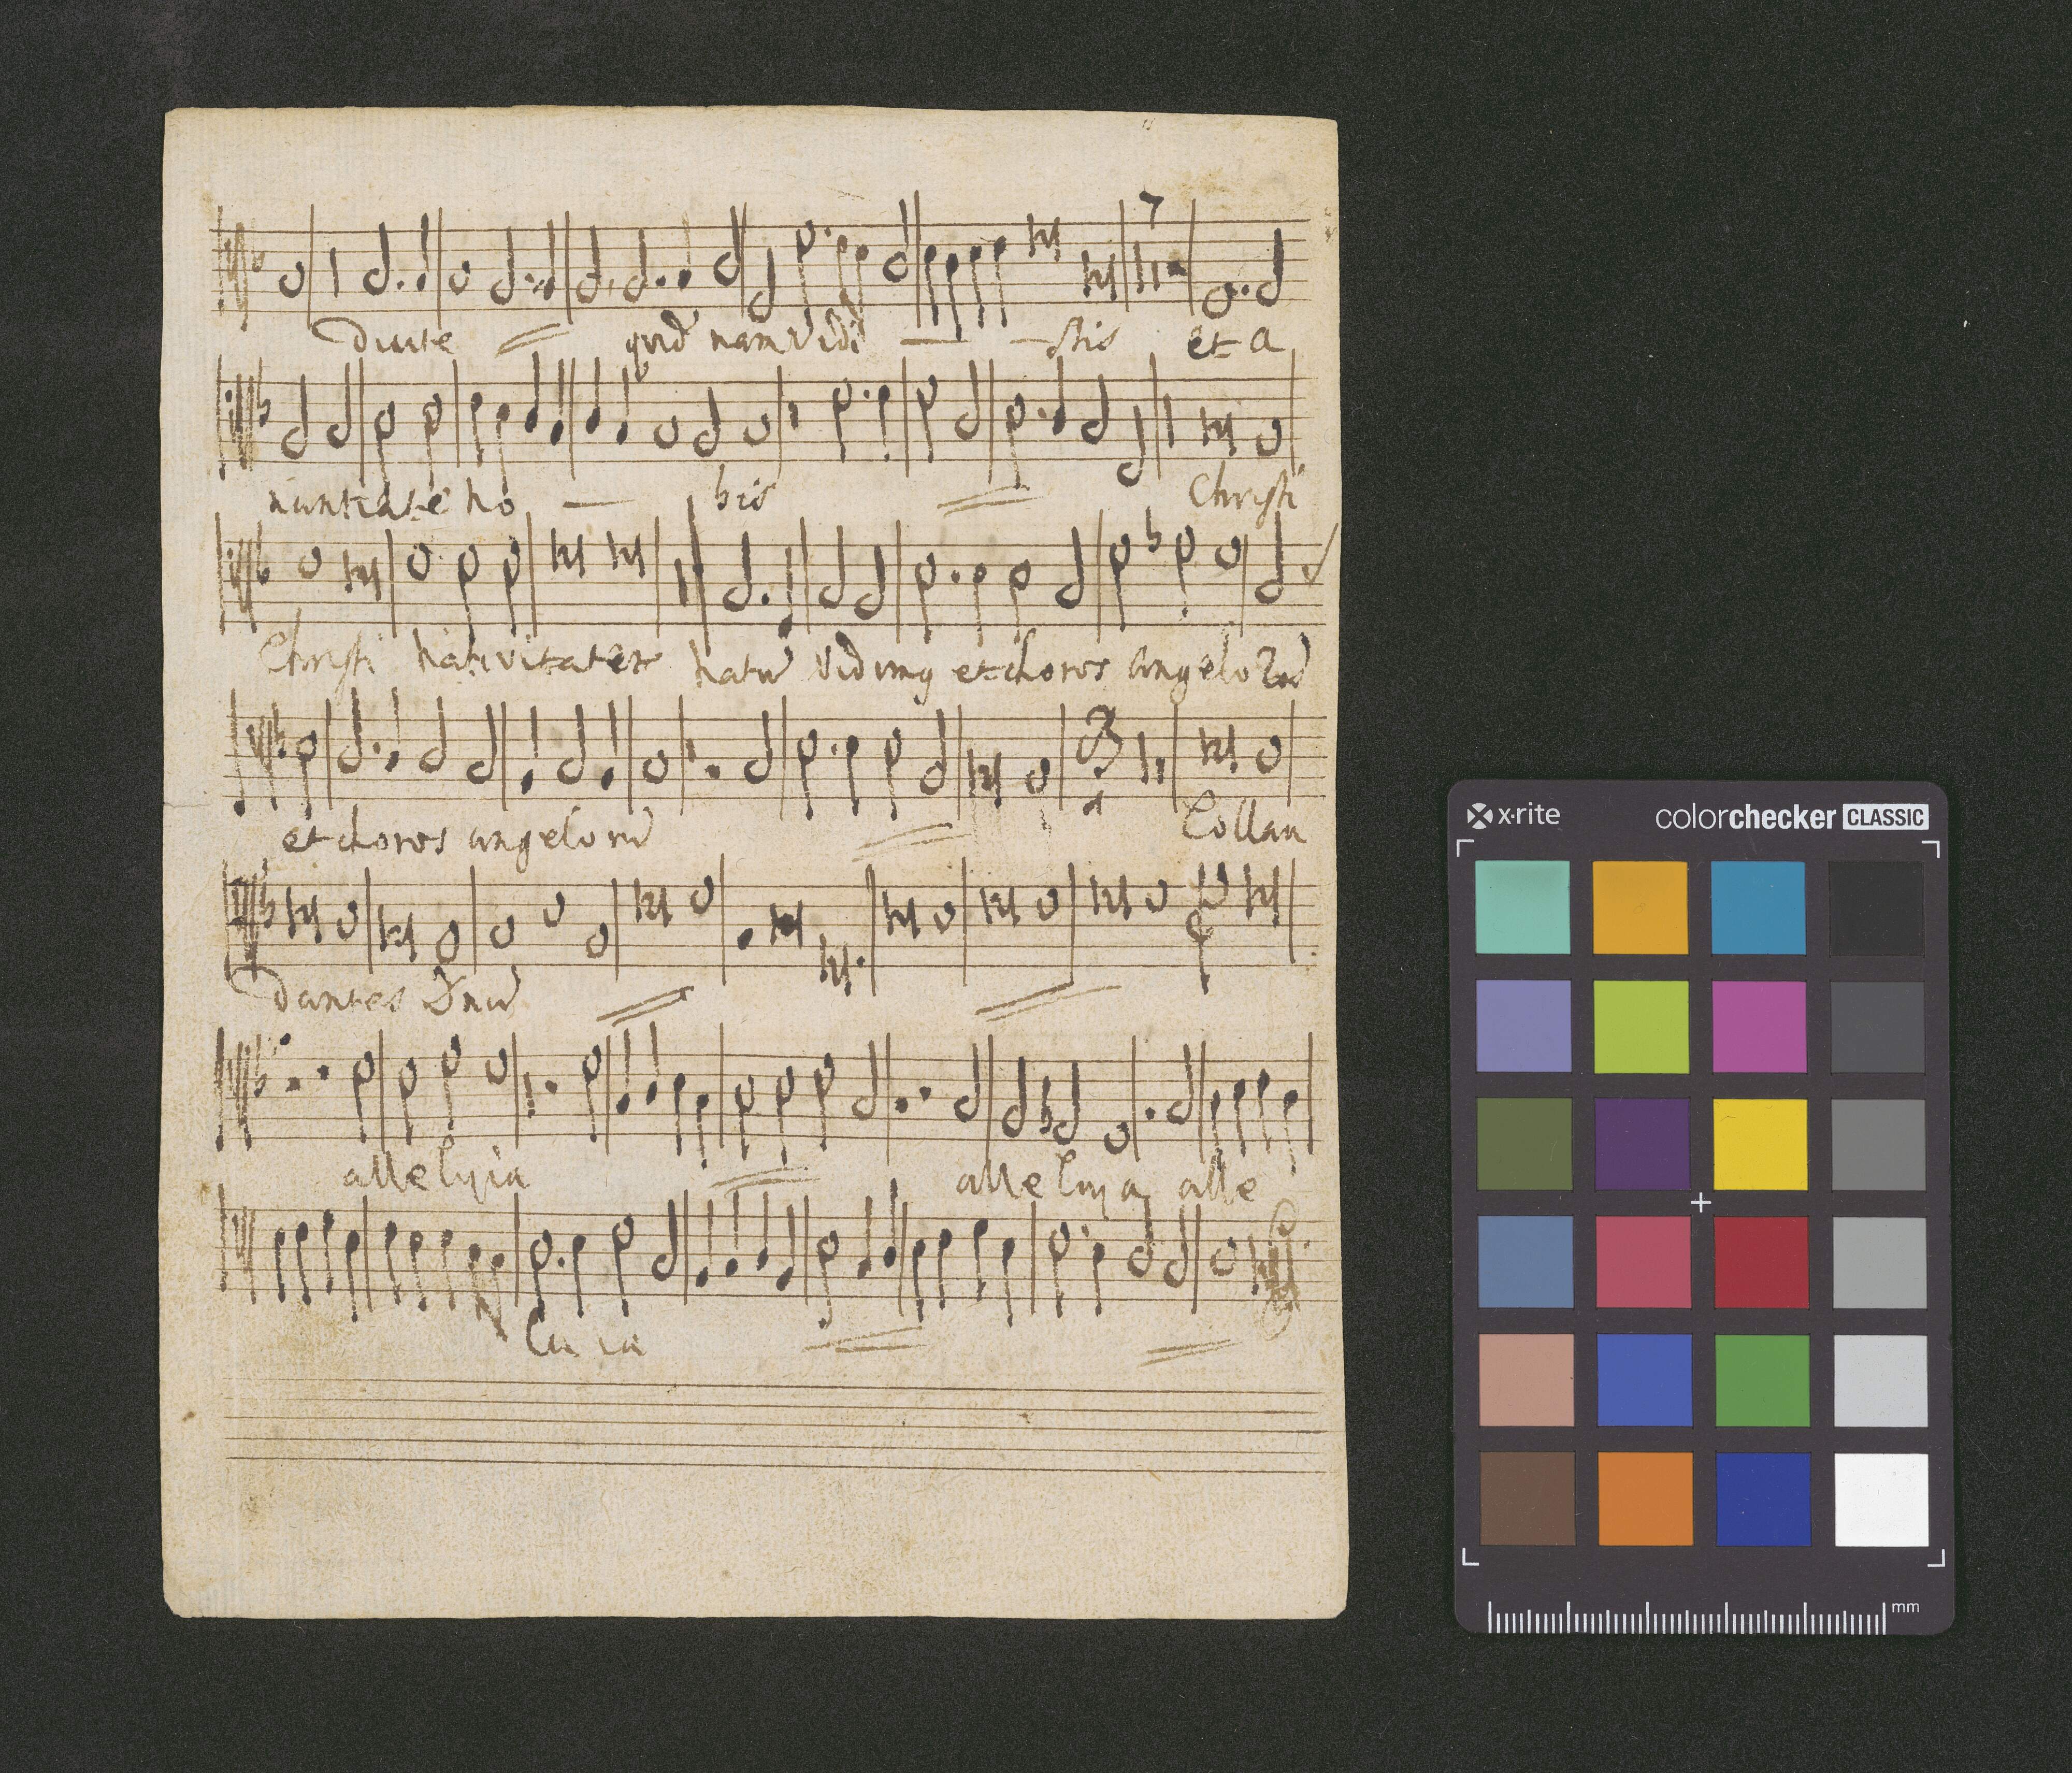 7
dicite quid nam vidi stis et a
nuntiate no bis Christi
Christi nativitatem natū vidimq et choros angeloꝝ
et choros angelorū
3 Collau
dantes Dnū
alleluia alleluya alle
luia
x·rite colorchecker CLASSIC
mm